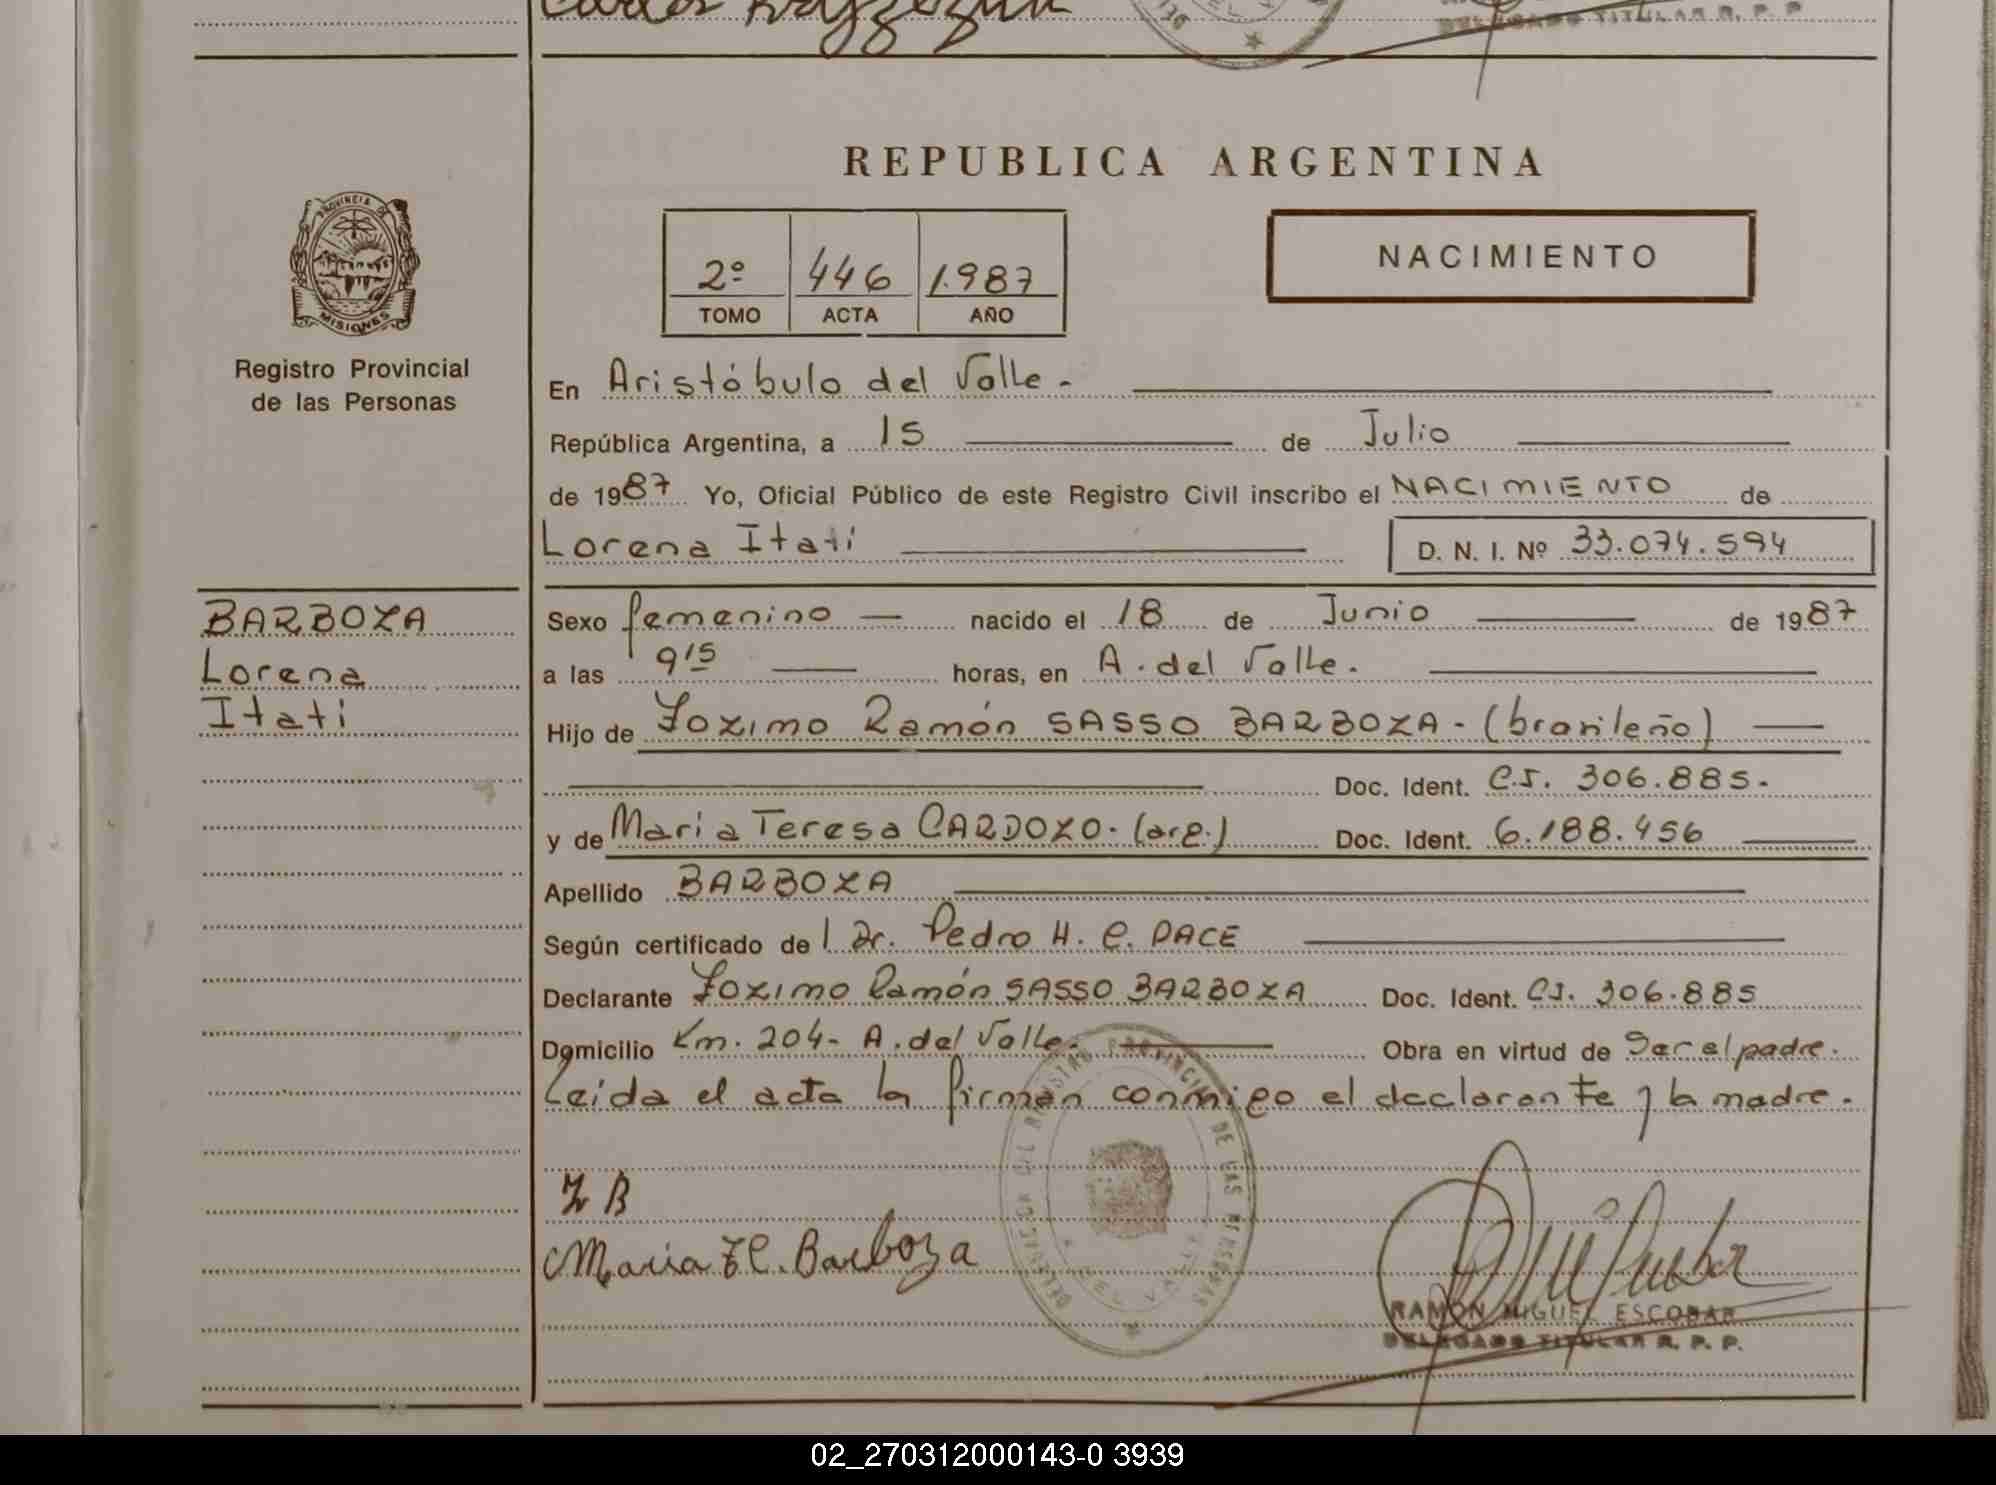 DELEGADO TITULAR R. P. P.
REPUBLICA ARGENTINA
PROVINCIA DE
MISIONES
Registro Provincial
de las Personas
2º 446 1.987
TOMO ACTA AÑO
NACIMIENTO
En Aristóbulo del Valle.-
República Argentina, a 15 de Julio
de 1987 Yo, Oficial Público de este Registro Civil inscribo el NACIMIENTO de
Lorena Itatí D. N. I. Nº 33.074.594
BARBOZA
Lorena
Itatí
Sexo femenino nacido el 18 de Junio de 1987
a las 9,15 horas, en A. del Valle.
Hijo de Zoximo Ramón SASSO BARBOZA - (brasileño)
Doc. Ident. C.I. 306.885.-
y de María Teresa CARDOZO.- (arg.) Doc. Ident. 6.188.456
Apellido BARBOZA
Según certificado del Dr. Pedro H. C. PACE
Declarante Zoximo Ramón SASSO BARBOZA Doc. Ident. C.I. 306.885
Domicilio Km. 204- A. del Valle.- Obra en virtud de Ser el padre.
Leída el acta la firman conmigo el declarante y la madre.
Z B
Maria T C. Barboza
DELEGACION DEL REGISTRO PROVINCIAL DE LAS PERSONAS
DEL VALLE
RAMON MIGUEL ESCOBAR
DELEGADO TITULAR R. P. P.
02_270312000143-0 3939